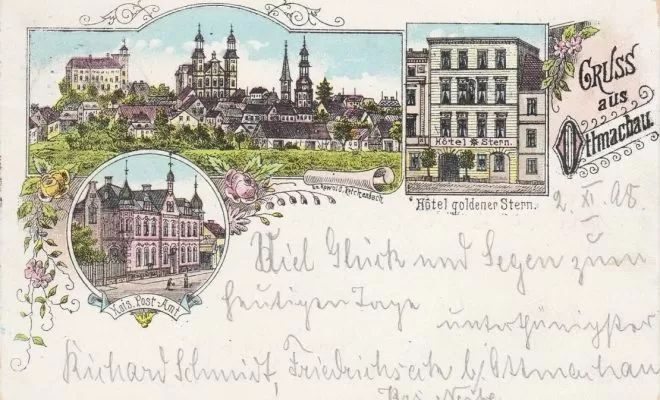 GRUSS
aus
Ottmachau.
Hôtel ✷ Stern.
Hôtel goldener Stern.
Kais. Post-Amt
2. XI. 98.
Viel Glück und Segen zum
heutigen Tage
unterthänigster
Richard Schmidt, Friedrichseck b/ Ottmachau
Bez. Neiße